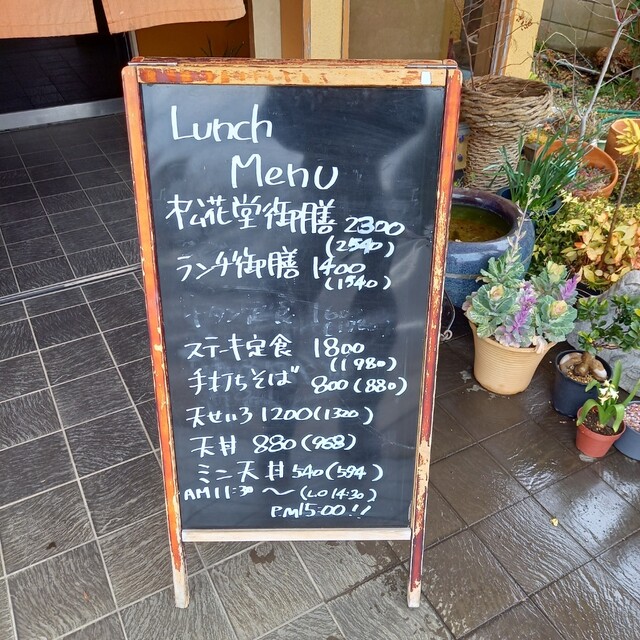 Lunch
Menu
松花堂御膳 2300
(2540)
ランチ御膳 1400
(1540)
ステーキ定食 1800
(1980)
手打ちそば 800 (880)
天せいろ 1200 (1320)
天丼 880 (968)
ミニ天丼 540 (594)
AM11:30 〜 (LO 14:30)
PM15:00!!